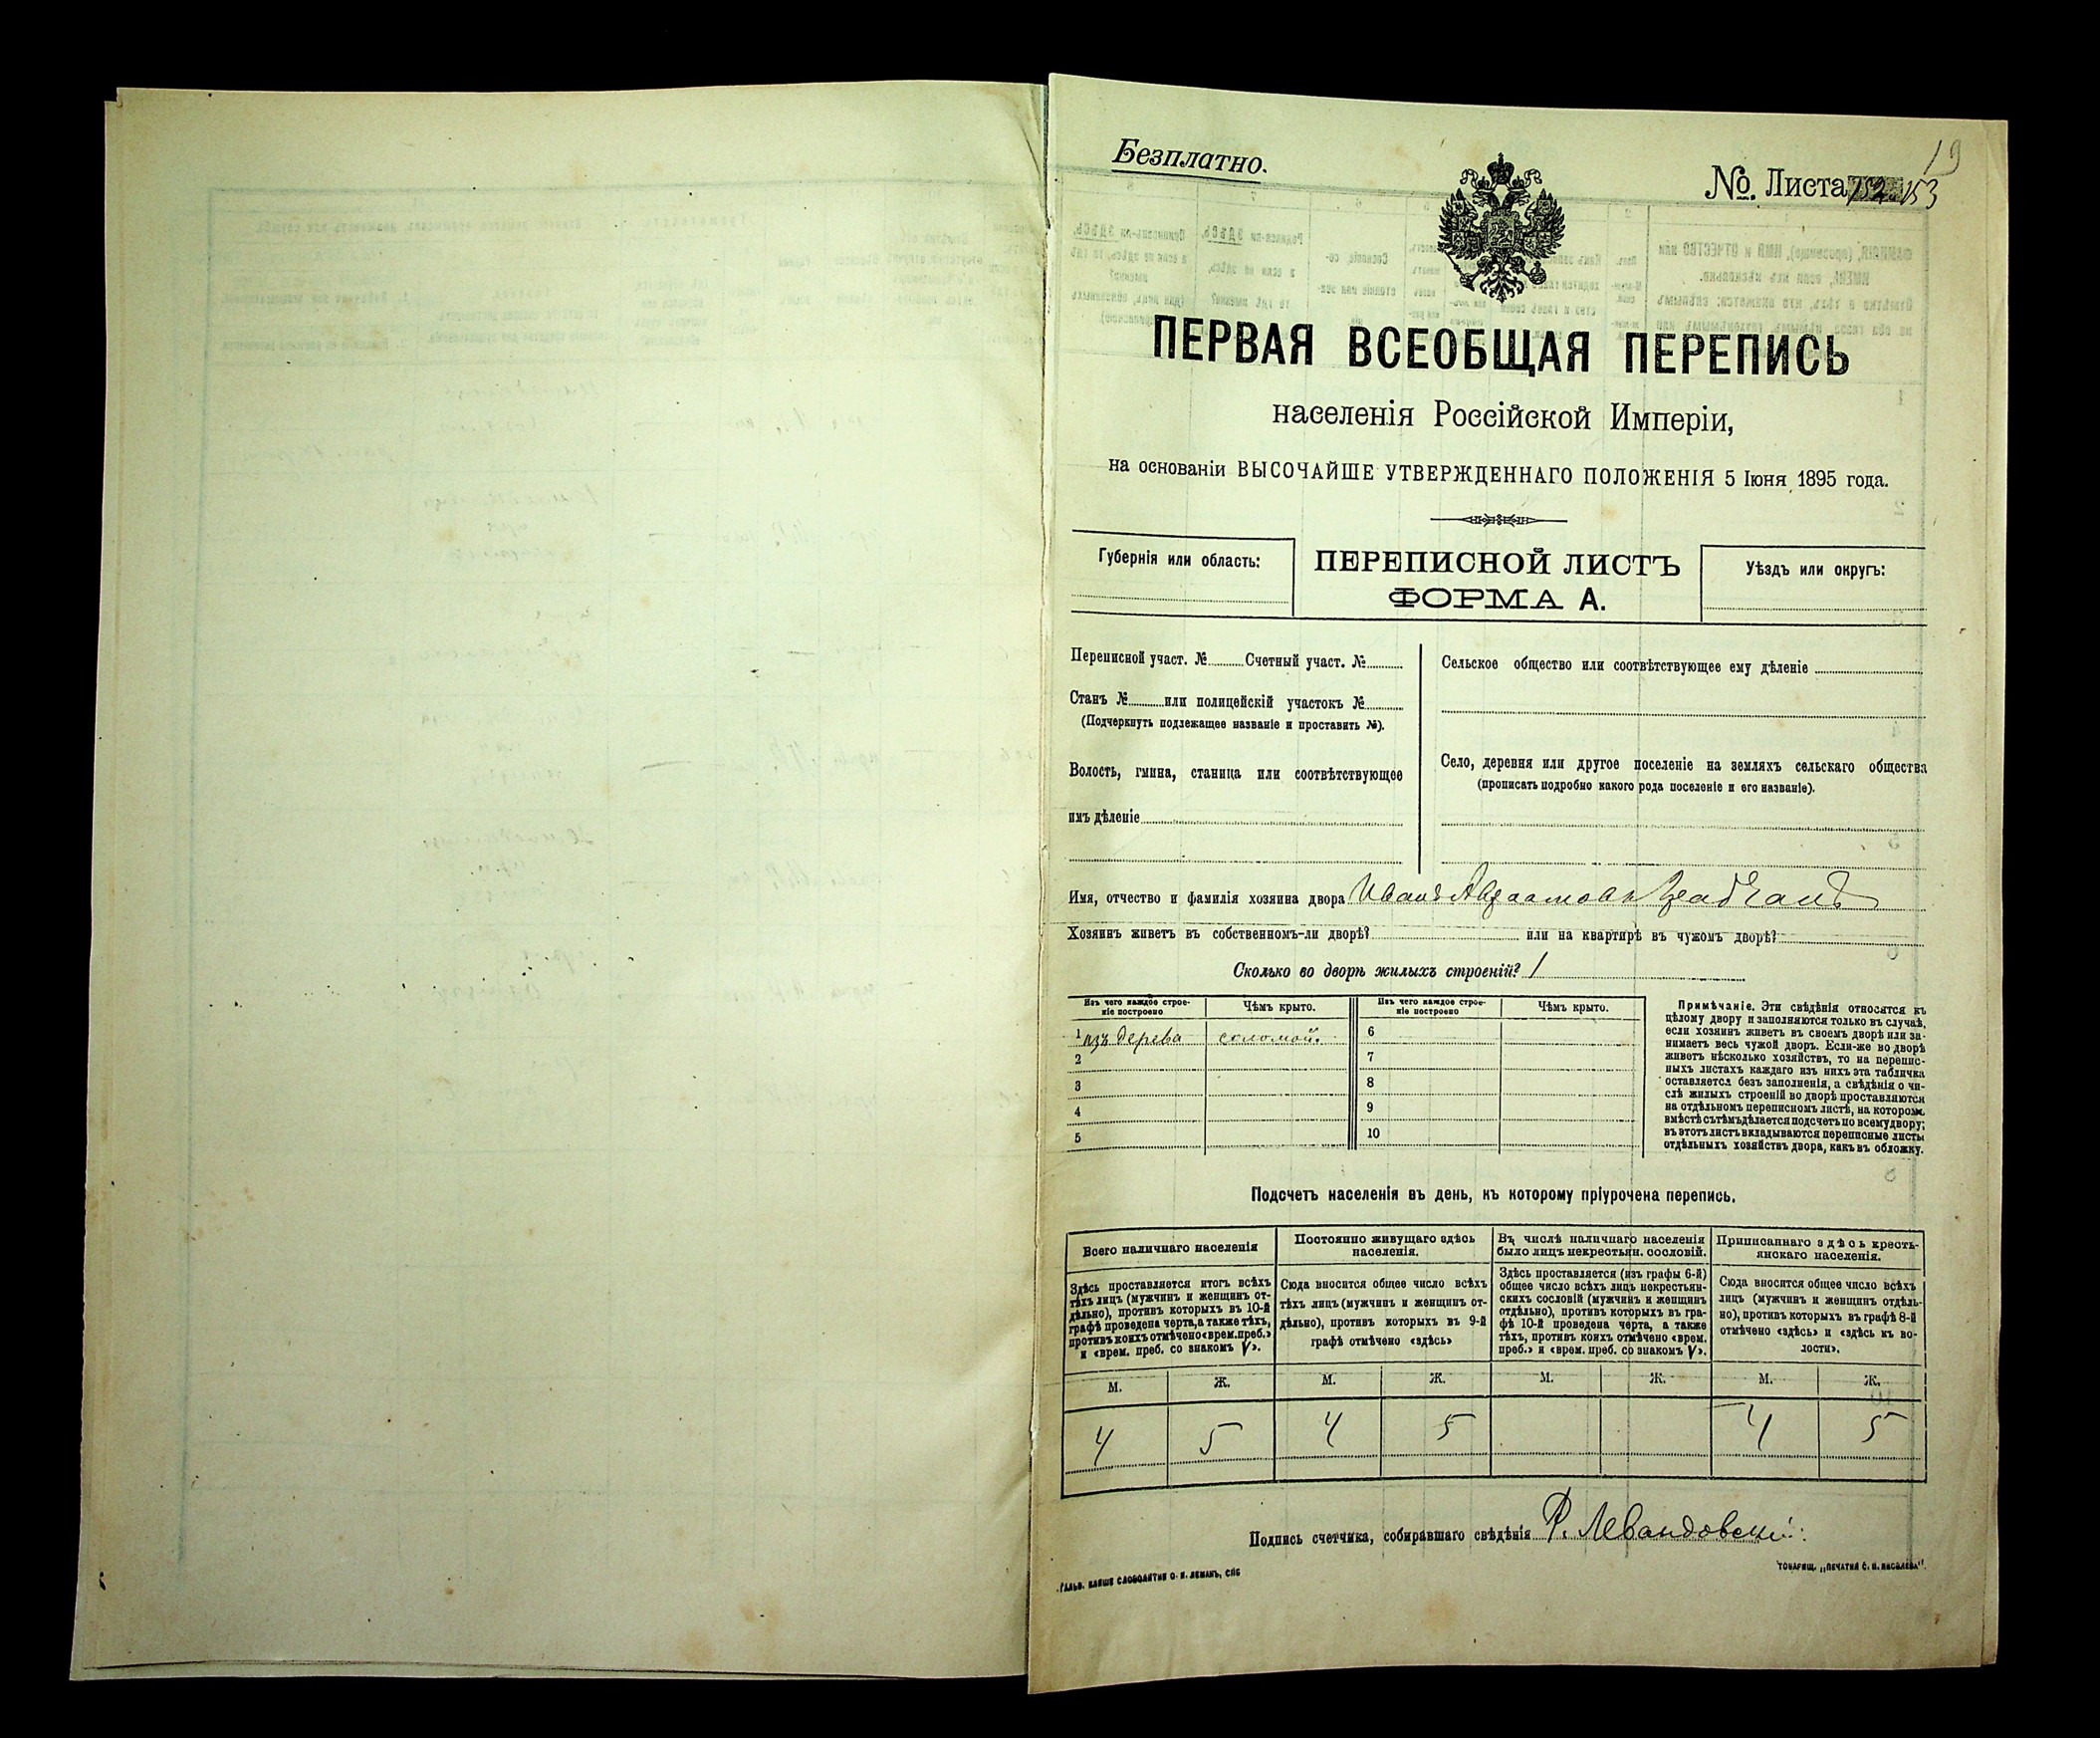 19
Безплатно.
№ Листа 152 153
ПЕРВАЯ ВСЕОБЩАЯ ПЕРЕПИСЬ
населенія Россійской Имперіи,
на основаніи ВЫСОЧАЙШЕ УТВЕРЖДЕННАГО ПОЛОЖЕНІЯ 5 Іюня 1895 года.
Губернія или область:
ПЕРЕПИСНОЙ ЛИСТЪ
ФОРМА А.
Уѣздъ или округъ:
Переписной участ. № Счетный участ. №
Станъ № или полицейскій участокъ №
(Подчеркнуть подлежащее названіе и проставить №).
Волость, гмина, станица или соотвѣтствующее
имъ дѣленіе
Сельское общество или соотвѣтствующее ему дѣленіе
Село, деревня или другое поселеніе на земляхъ сельскаго общества
(прописать подробно какого рода поселеніе и его названіе).
Имя, отчество и фамилія хозяина двора Иванъ
Хозяинъ живетъ въ собственномъ-ли дворѣ? или на квартирѣ въ чужомъ дворѣ?
Сколько во дворѣ жилыхъ строеній? 1
Изъ чего каждое строе-
ніе построено
Чѣмъ крыто.
Изъ чего каждое строе-
ніе построено
Чѣмъ крыто.
1 изъ дерева соломой. 6
2 7
3 8
4 9
5 10
Примѣчаніе. Эти свѣдѣнія относятся къ
цѣлому двору и заполняются только въ случаѣ,
если хозяинъ живетъ въ своемъ дворѣ или за-
нимаетъ весь чужой дворъ. Если-же во дворѣ
живетъ нѣсколько хозяйствъ, то на перепис-
ныхъ листахъ каждаго изъ нихъ эта табличка
оставляется безъ заполненія, а свѣдѣнія о чи-
слѣ жилыхъ строеній во дворѣ проставляются
на отдѣльномъ переписномъ листѣ, на которомъ
вмѣстѣ съ тѣмъ дѣлается подсчетъ по всему двору;
въ этотъ листъ вкладываются переписные листы
отдѣльныхъ хозяйствъ двора, какъ въ обложку.
Подсчетъ населенія въ день, къ которому пріурочена перепись.
Всего наличнаго населенія
Постоянно живущаго здѣсь
населенія.
Въ числѣ наличнаго населенія
было лицъ некрестьян. сословій.
Приписаннаго здѣсь кресть-
янскаго населенія.
Здѣсь проставляется итогъ всѣхъ
тѣхъ лицъ (мужчинъ и женщинъ от-
дѣльно), противъ которыхъ въ 10-й
графѣ проведена черта, а также тѣхъ,
противъ коихъ отмѣчено «врем. преб.»
и «врем. преб. со знакомъ V».
Сюда вносится общее число всѣхъ
тѣхъ лицъ (мужчинъ и женщинъ от-
дѣльно), противъ которыхъ въ 9-й
графѣ отмѣчено «здѣсь»
Здѣсь проставляется (изъ графы 6-й)
общее число всѣхъ лицъ некрестьян-
скихъ сословій (мужчинъ и женщинъ
отдѣльно), противъ которыхъ въ гра-
фѣ 10-й проведена черта, а также
тѣхъ, противъ коихъ отмѣчено «врем.
преб.» и «врем. преб. со знакомъ V».
Сюда вносится общее число всѣхъ
лицъ (мужчинъ и женщинъ отдѣль-
но), противъ которыхъ въ графѣ 8-й
отмѣчено «здѣсь» и «здѣсь къ во-
лости».
М. Ж. М. Ж. М. Ж. М. Ж.
4 5 4 5 4 5
Подпись счетчика, собиравшаго свѣдѣнія Р. Левандовскій
ТОВАРИЩ. „ПЕЧАТНЯ С. П. ЯКОВЛЕВА“.